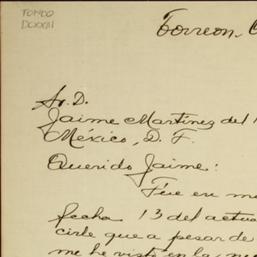 FONDO
DCXXIII
Torreon,
Sr. D.
Jaime Martínez del
México, D. F.
Querido Jaime:
Fué en
fecha 13 del actua
cirle que a pesar de
me he visto en la